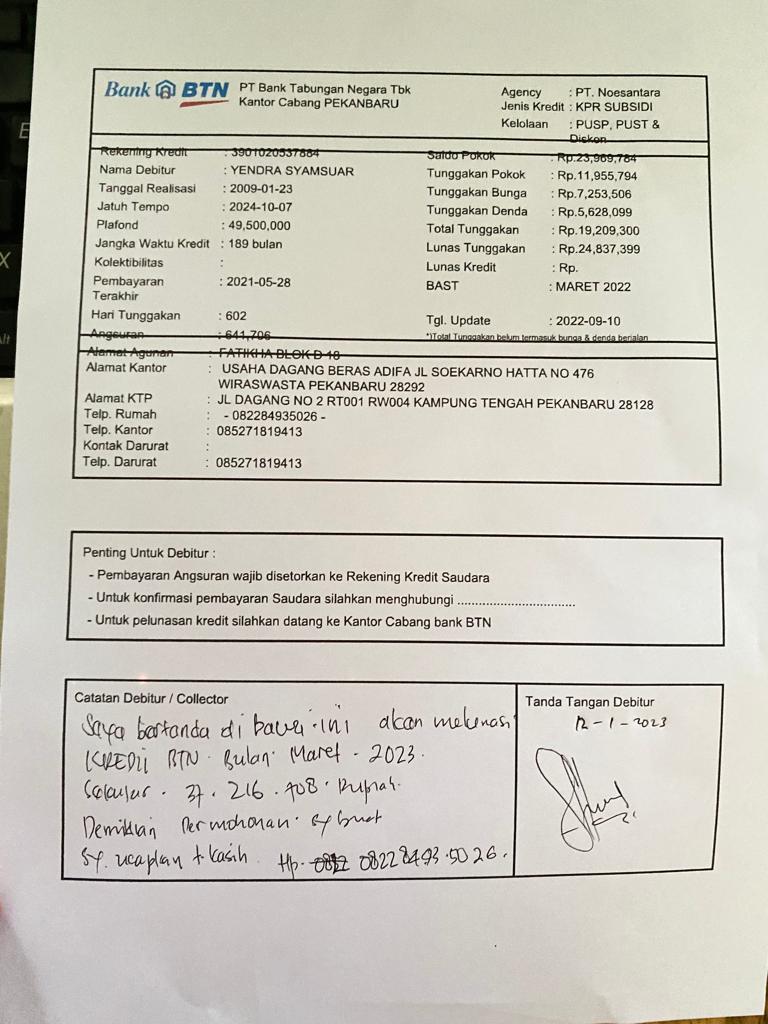 Bank BTN PT Bank Tabungan Negara Tbk
Kantor Cabang PEKANBARU
Agency : PT. Noesantara
Jenis Kredit : KPR SUBSIDI
Kelolaan : PUSP, PUST &
Diskon
Rekening Kredit : 3901020537884
Nama Debitur : YENDRA SYAMSUAR
Tanggal Realisasi : 2009-01-23
Jatuh Tempo : 2024-10-07
Plafond : 49,500,000
Jangka Waktu Kredit : 189 bulan
Kolektibilitas :
Pembayaran : 2021-05-28
Terakhir
Hari Tunggakan : 602
Angsuran : 641,706
Saldo Pokok : Rp.23,969,784
Tunggakan Pokok : Rp.11,955,794
Tunggakan Bunga : Rp.7,253,506
Tunggakan Denda : Rp.5,628,099
Total Tunggakan : Rp.19,209,300
Lunas Tunggakan : Rp.24,837,399
Lunas Kredit : Rp.
BAST : MARET 2022
Tgl. Update : 2022-09-10
*)Total Tunggakan belum termasuk bunga & denda berjalan
Alamat Agunan : FATIKHA BLOK D 18
Alamat Kantor : USAHA DAGANG BERAS ADIFA JL SOEKARNO HATTA NO 476
WIRASWASTA PEKANBARU 28292
Alamat KTP : JL DAGANG NO 2 RT001 RW004 KAMPUNG TENGAH PEKANBARU 28128
Telp. Rumah : - 082284935026 -
Telp. Kantor : 085271819413
Kontak Darurat :
Telp. Darurat : 085271819413
Penting Untuk Debitur :
- Pembayaran Angsuran wajib disetorkan ke Rekening Kredit Saudara
- Untuk konfirmasi pembayaran Saudara silahkan menghubungi .................................
- Untuk pelunasan kredit silahkan datang ke Kantor Cabang bank BTN
Catatan Debitur / Collector
Saya bertanda di bawa ini akan melunasi
KREDIT BTN. Bulan. Maret - 2023.
37.216.708. Rupiah.
Demikian Permohonan. sy buat
Sy. ucapkan t. kasih. Hp. 0822 8493.5026.
Tanda Tangan Debitur
12-1-2023